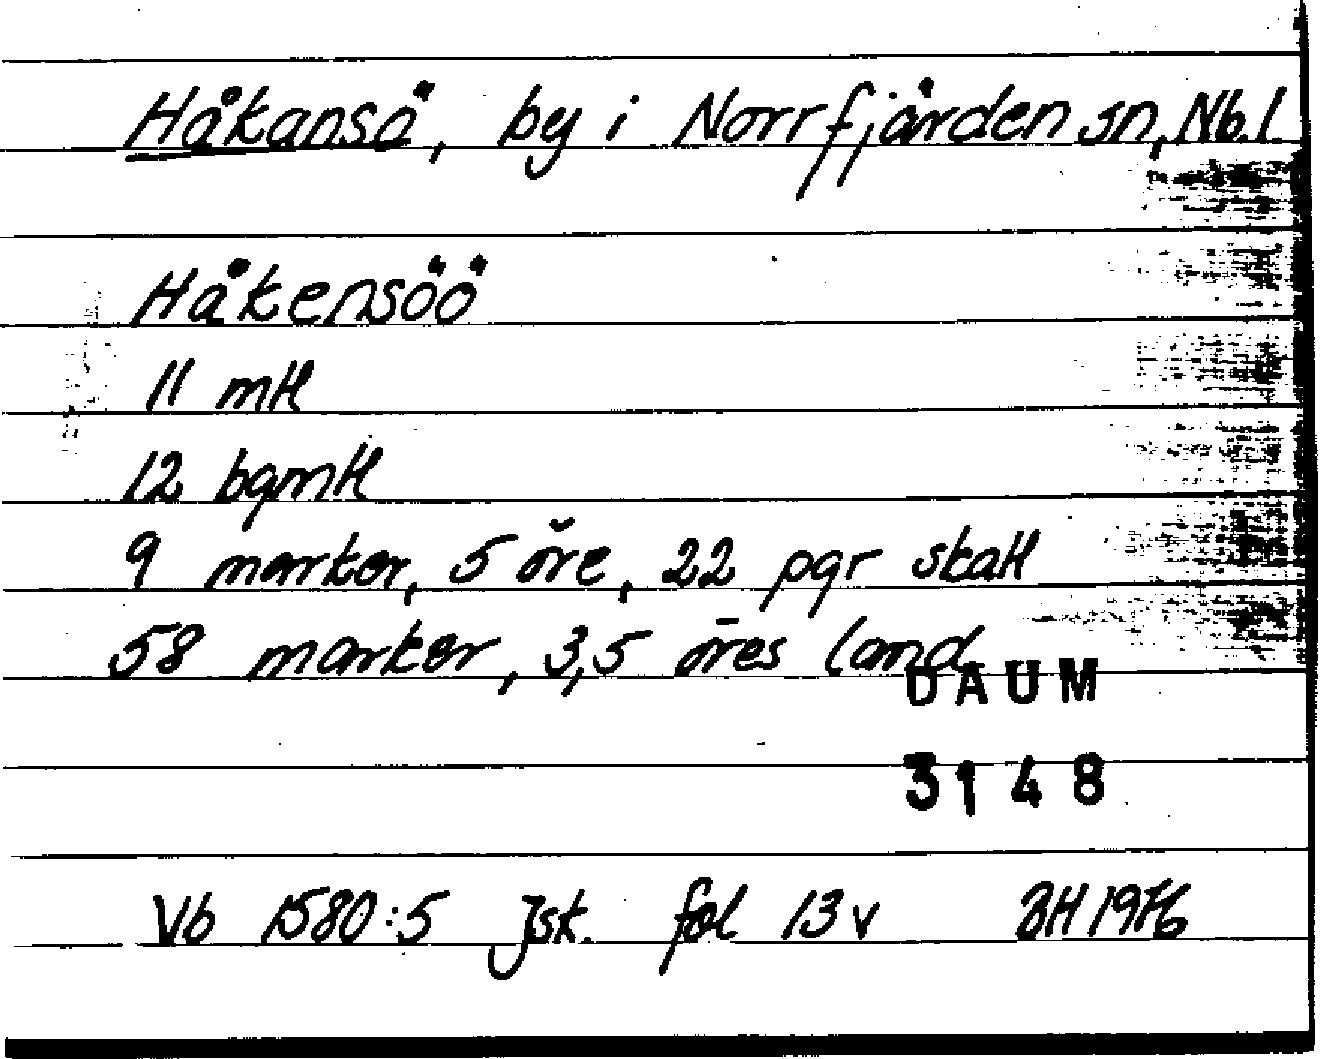 Håkansö, by i Norrfjärden sn, Nb.l.
Håkensöö
11 mtl
12 bgmtl
9 marker, 5 öre, 22 pgr skatt
58 marker, 3,5 öres land
DAUM
3148
Vb 1580:5 Jsk. fol 13 v BH 1976